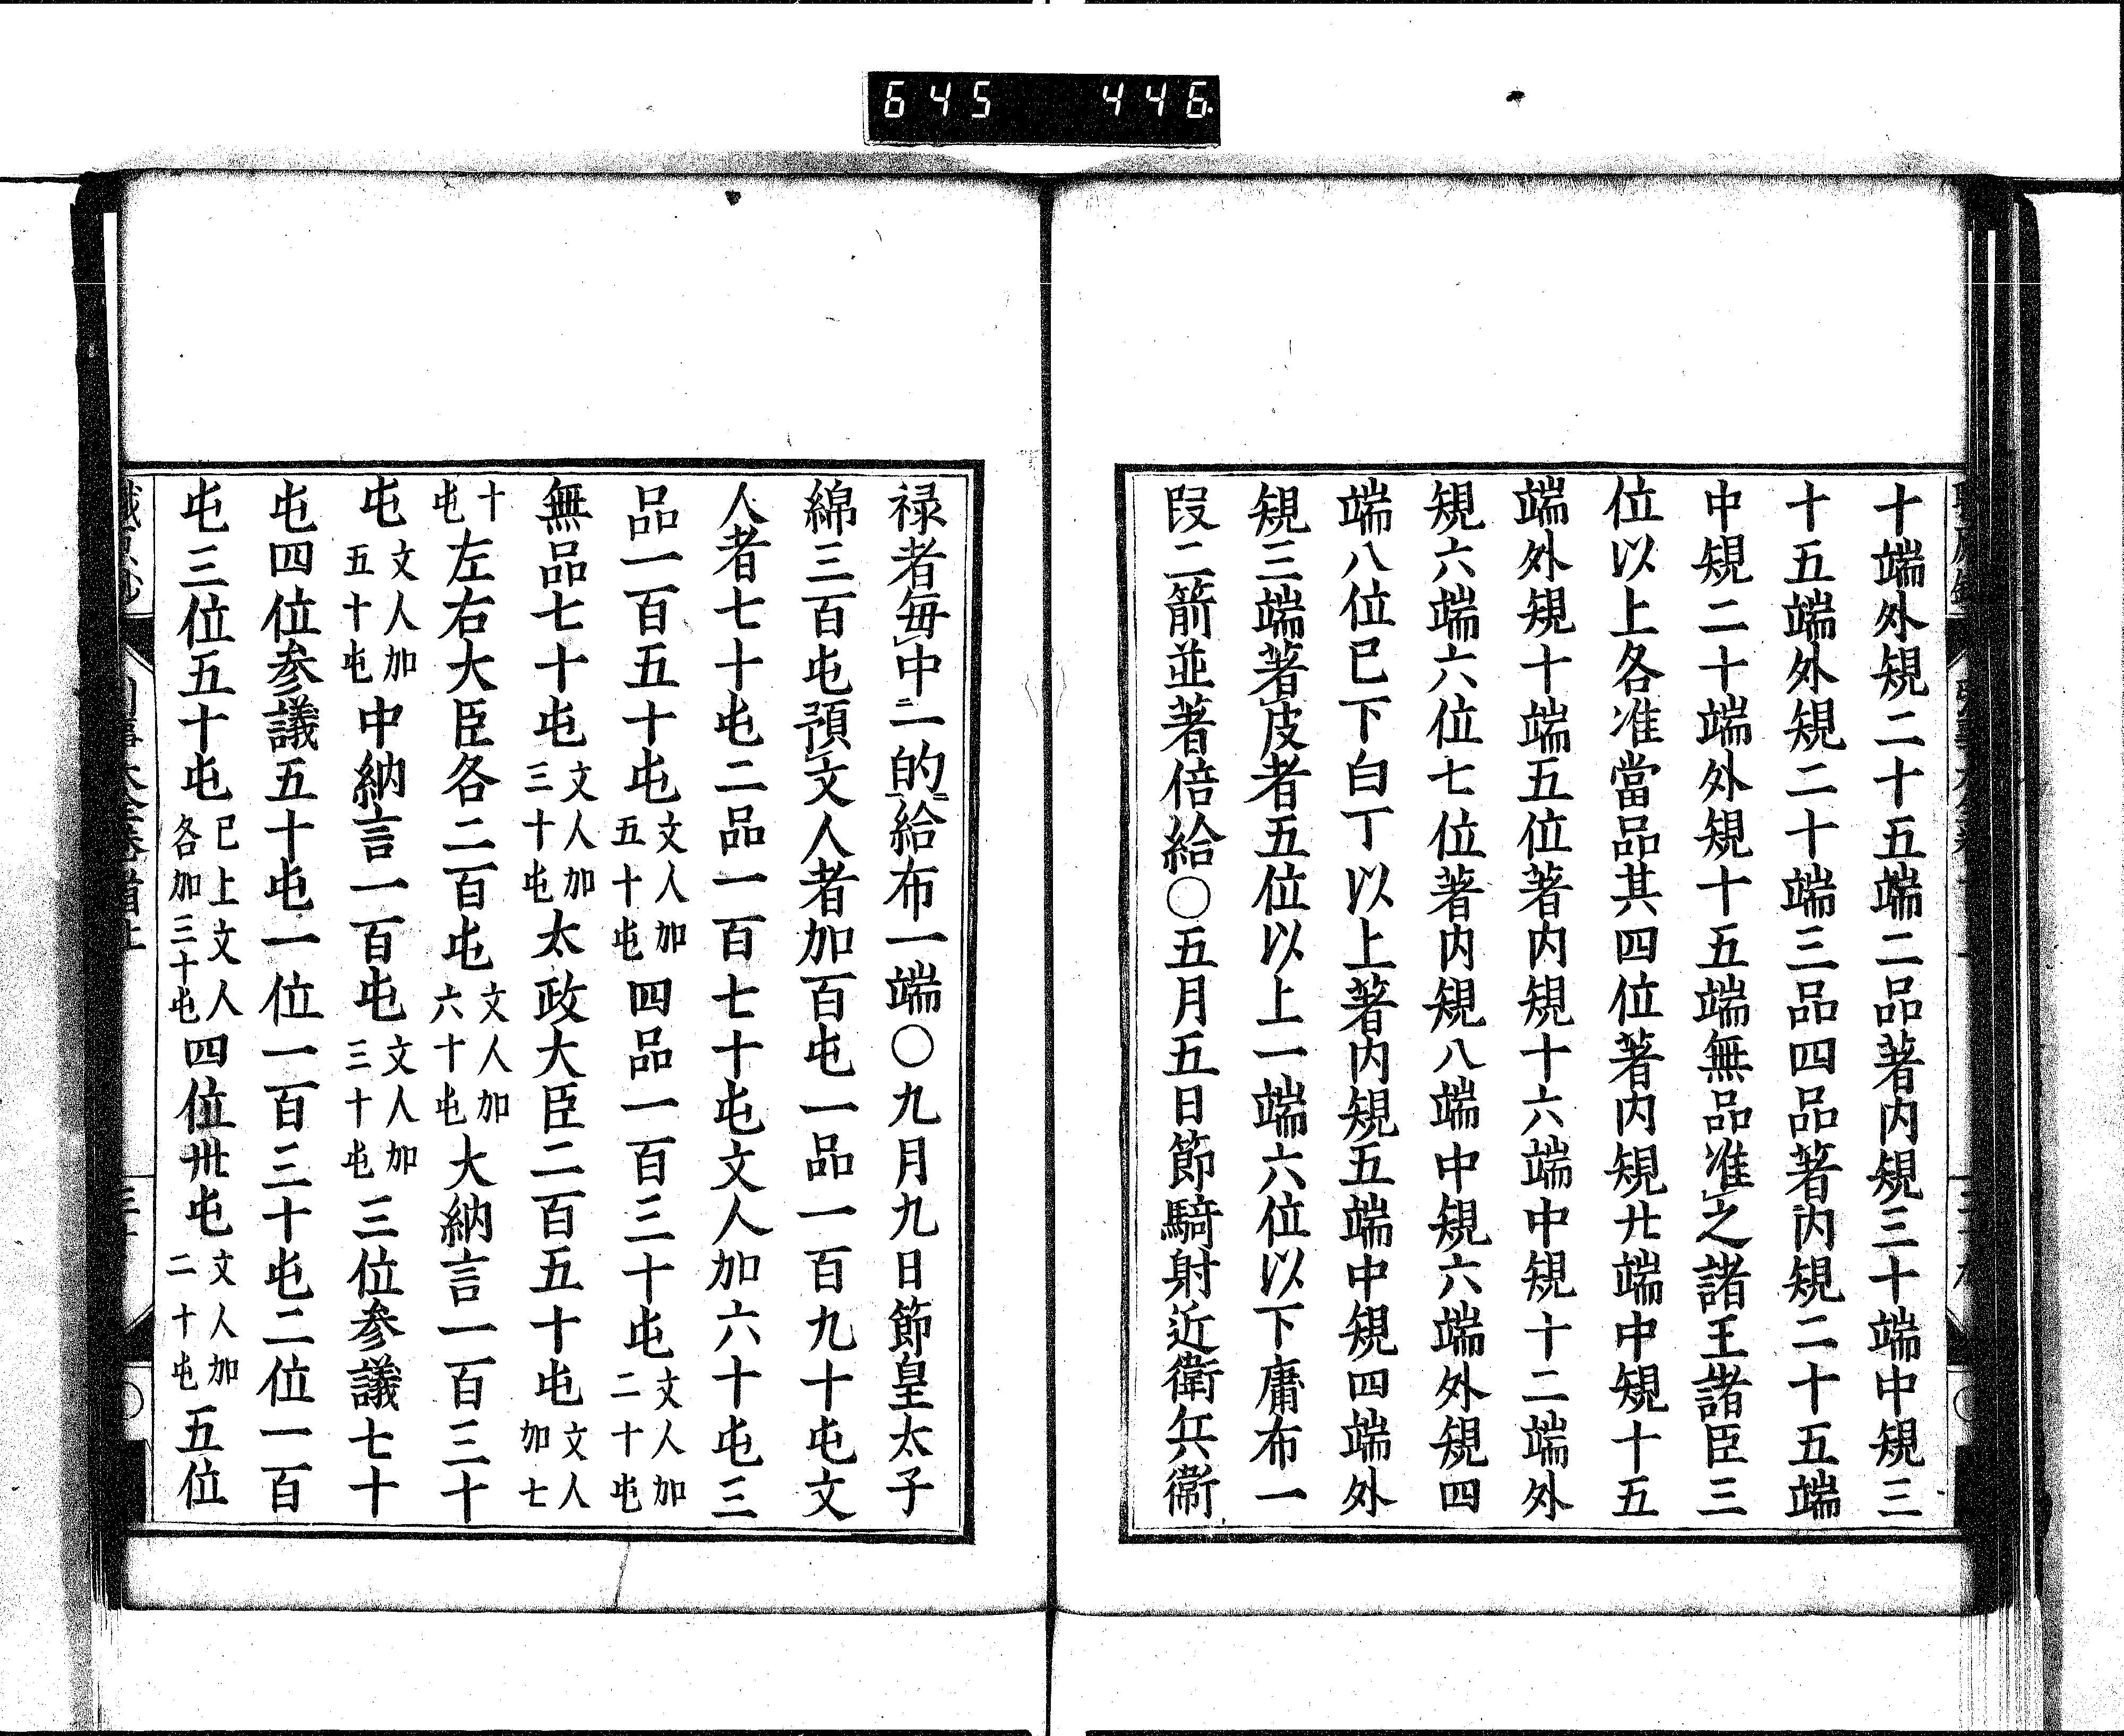 645 446.
十端外規二十五端二品著内規三十端中規三
十五端外規二十端三品四品著内規二十五端
中規二十端外規十五端無品准之諸王諸臣三
位以上各准當品其四位著内規廿端中規十五
端外規十端五位著内規十六端中規十二端外
規六端六位七位著内規八端中規六端外規四
端八位已下白丁以上著内規五端中規四端外
規三端著皮者五位以上一端六位以下庸布一
段二箭並著倍給〇五月五日節騎射近衛兵衛
禄者毎中二的給布一端〇九月九日節皇太子
綿三百屯預文人者加百屯一品一百九十屯文
人者七十屯二品一百七十屯文人加六十屯三
品一百五十屯文人加五十屯四品一百三十屯文人加二十屯
無品七十屯文人加三十屯太政大臣二百五十屯文人加七
十屯左右大臣各二百屯文人加六十屯大納言一百三十
屯文人加五十屯中納言一百屯文人加三十屯三位参議七十
屯四位参議五十屯一位一百三十屯二位一百
屯三位五十屯已上文人各加三十屯四位卅屯文人加二十屯五位